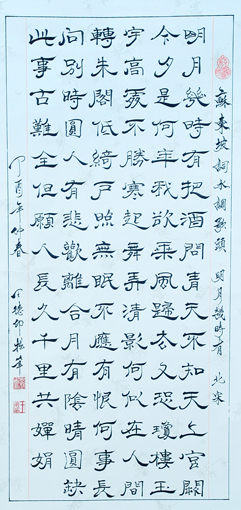 蘇東坡詞水調歌頭 明月幾時有 北宋
明月幾時有把酒問青天不知天上宮闕
今夕是何年我欲乘風歸去又恐瓊樓玉
宇高處不勝寒起舞弄清影何似在人間
轉朱閣低綺戶照無眠不應有恨何事長
向別時圓人有悲歡離合月有陰晴圓缺
此事古難全但願人長久千里共嬋娟
丁酉年仲春